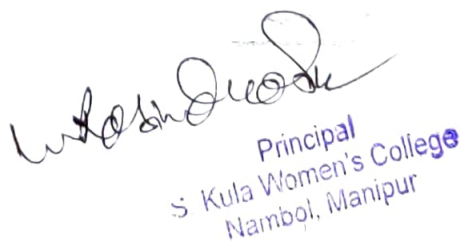 Principal
S Kula Women's College
Nambol, Manipur